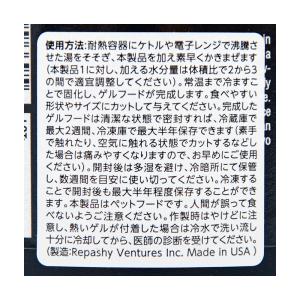 使用方法:耐熱容器にケトルや電子レンジで沸騰
させた湯をそそぎ、本製品を加え素早くかきまぜます
(本製品1に対し、加える水分量は体積比で2から3
の間で適宜調整してください)。常温まで冷ますこ
とで固化し、ゲルフードが完成します。食べやすい
形状やサイズにカットして与えてください。完成した
ゲルフードは清潔な状態で密封すれば、冷蔵庫で
最大2週間、冷凍庫で最大半年保存できます(素手
で触れたり、空気に触れる状態でカットするなどし
た場合は痛みやすくなりますので、お早めにご使用く
ださい)。開封後は多湿を避け、冷暗所にて保管
し、数週間を目安に使い切ってください。冷凍する
ことで開封後も最大半年程度保存することもできま
す。本製品はペットフードです。人間が誤って食
べないようご注意ください。作製時はやけどに注意
し、熱いゲルが付着した場合は冷水で洗い流し
十分に冷却してから、医師の診断を受けてください。
(製造:Repashy Ventures Inc. Made in USA)